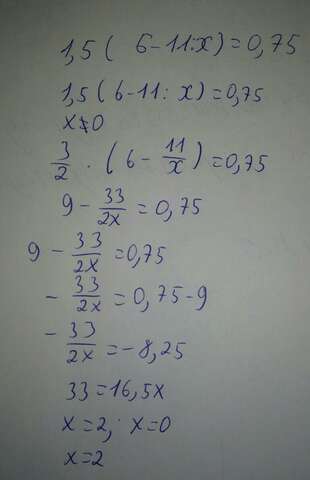 1,5( 6-11:x)=0,75
1,5(6-11: x)=0,75
x≠0
3/2 · (6- 11/x)=0,75
9- 33/2x =0,75
9- 33/2x =0,75
- 33/2x =0,75-9
- 33/2x =-8,25
33=16,5x
x=2; x=0
x=2